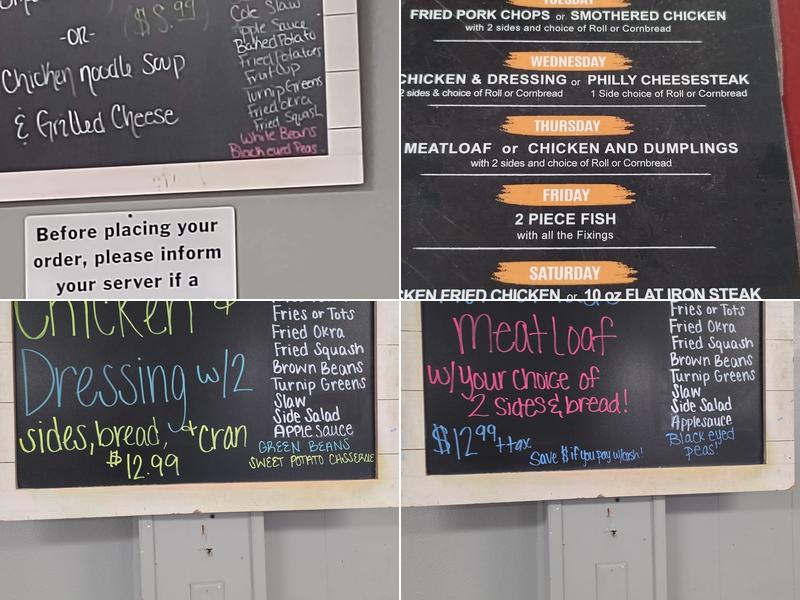 $8.99
-or-
Chicken noodle Soup
& Grilled Cheese
Cole Slaw
Apple Sauce
Baked Potato
Fried Potatoes
Fruit Cup
Turnip Greens
Fried Okra
Fried Squash
White Beans
Black eyed Peas
Before placing your
order, please inform
your server if a
TUESDAY
FRIED PORK CHOPS or SMOTHERED CHICKEN
with 2 sides and choice of Roll or Cornbread
WEDNESDAY
CHICKEN & DRESSING or PHILLY CHEESESTEAK
2 sides & choice of Roll or Cornbread 1 Side choice of Roll or Cornbread
THURSDAY
MEATLOAF or CHICKEN AND DUMPLINGS
with 2 sides and choice of Roll or Cornbread
FRIDAY
2 PIECE FISH
with all the Fixings
SATURDAY
CKEN FRIED CHICKEN or 10 oz FLAT IRON STEAK
Chicken +
Dressing w/2
sides, bread, + cran
$12.99
Fries or Tots
Fried Okra
Fried Squash
Brown Beans
Turnip Greens
Slaw
Side Salad
Applesauce
GREEN BEANS
SWEET POTATO CASSEROLE
Meatloaf
w/ your choice of
2 sides & bread!
$12.99 + tax
Save $ if you pay w/cash!
Fries or Tots
Fried Okra
Fried Squash
Brown Beans
Turnip Greens
Slaw
Side Salad
Applesauce
Black eyed
peas!